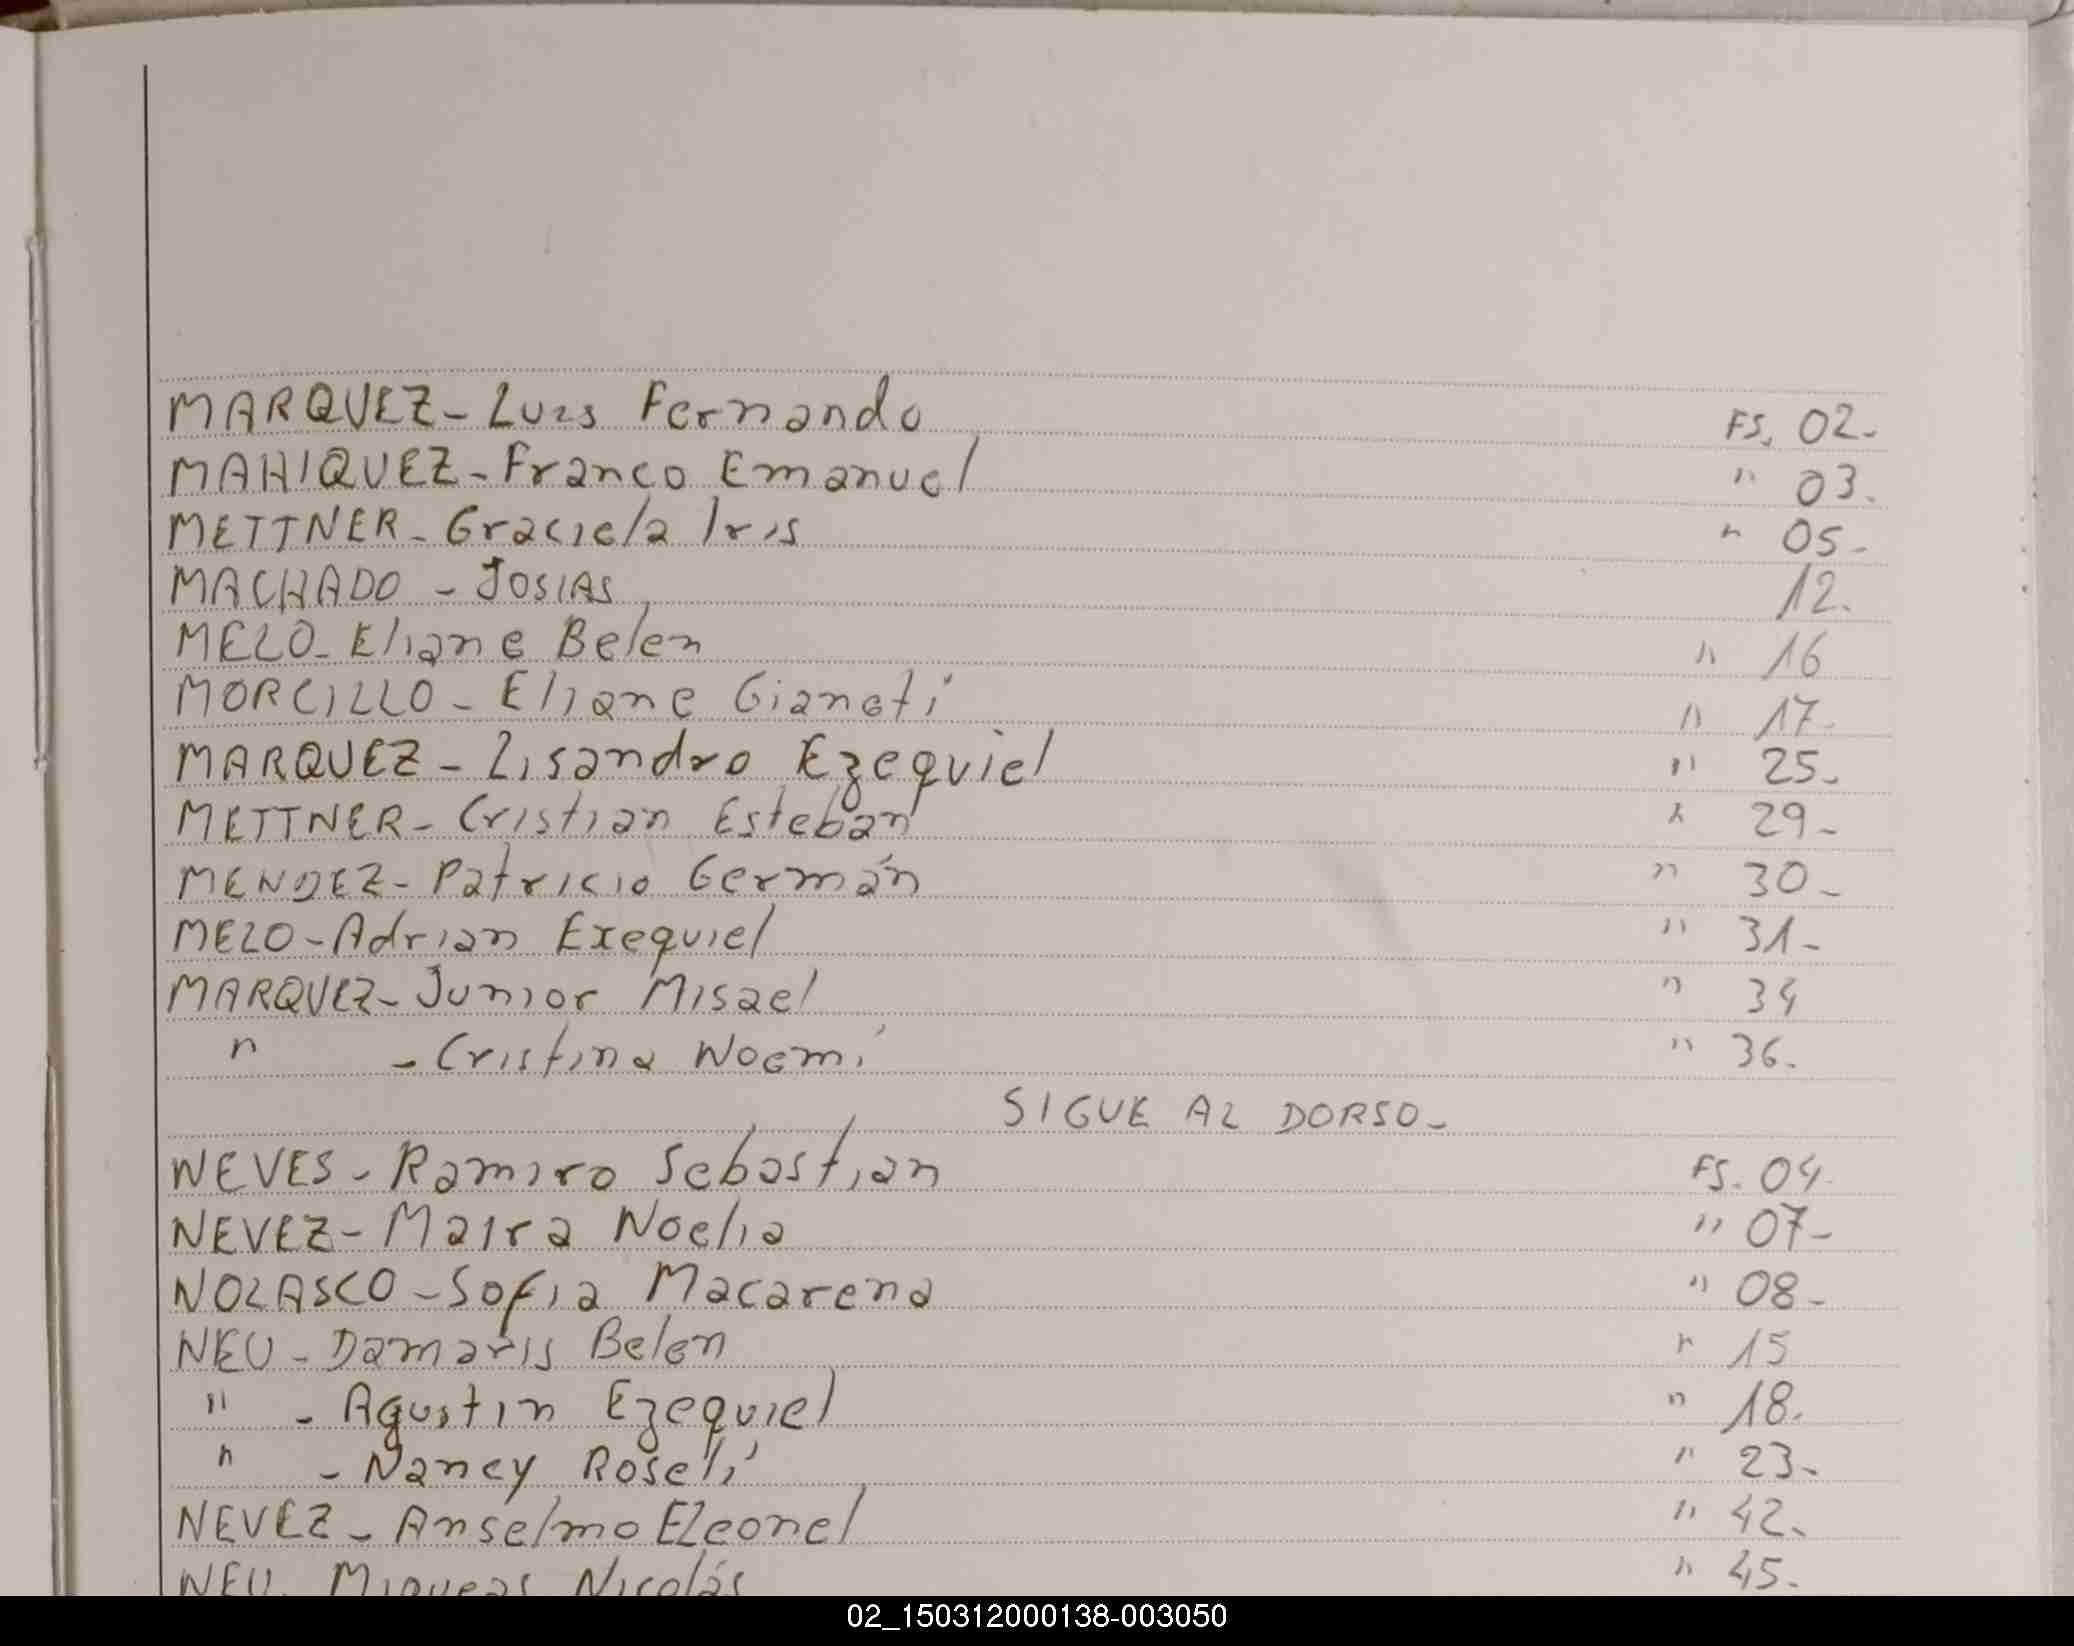 MARQUEZ - Luis Fernando FS. 02-
MAHIQUEZ - Franco Emanuel " 03.
METTNER - Graciela Iris " 05-
MACHADO - JOSIAS 12.
MELO - Eliane Belen " 16
MORCILLO - Eliane Gianeti " 17-
MARQUEZ - Lisandro Ezequiel " 25-
METTNER - Cristian Esteban " 29-
MENDEZ - Patricio Germán " 30-
MELO - Adrian Exequiel " 31-
MARQUEZ - Junior Misael " 34
" - Cristina Noemí " 36-
SIGUE AL DORSO-
NEVES - Ramiro Sebastian FS. 04-
NEVEZ - Maira Noelia " 07-
NOLASCO - Sofia Macarena " 08-
NEU - Damaris Belen " 15
" - Agustin Ezequiel " 18.
" - Nancy Roselí " 23-
NEVEZ - Anselmo Eleonel " 42-
NEU - Miqueas Nicolás " 45-
02_150312000138-003050